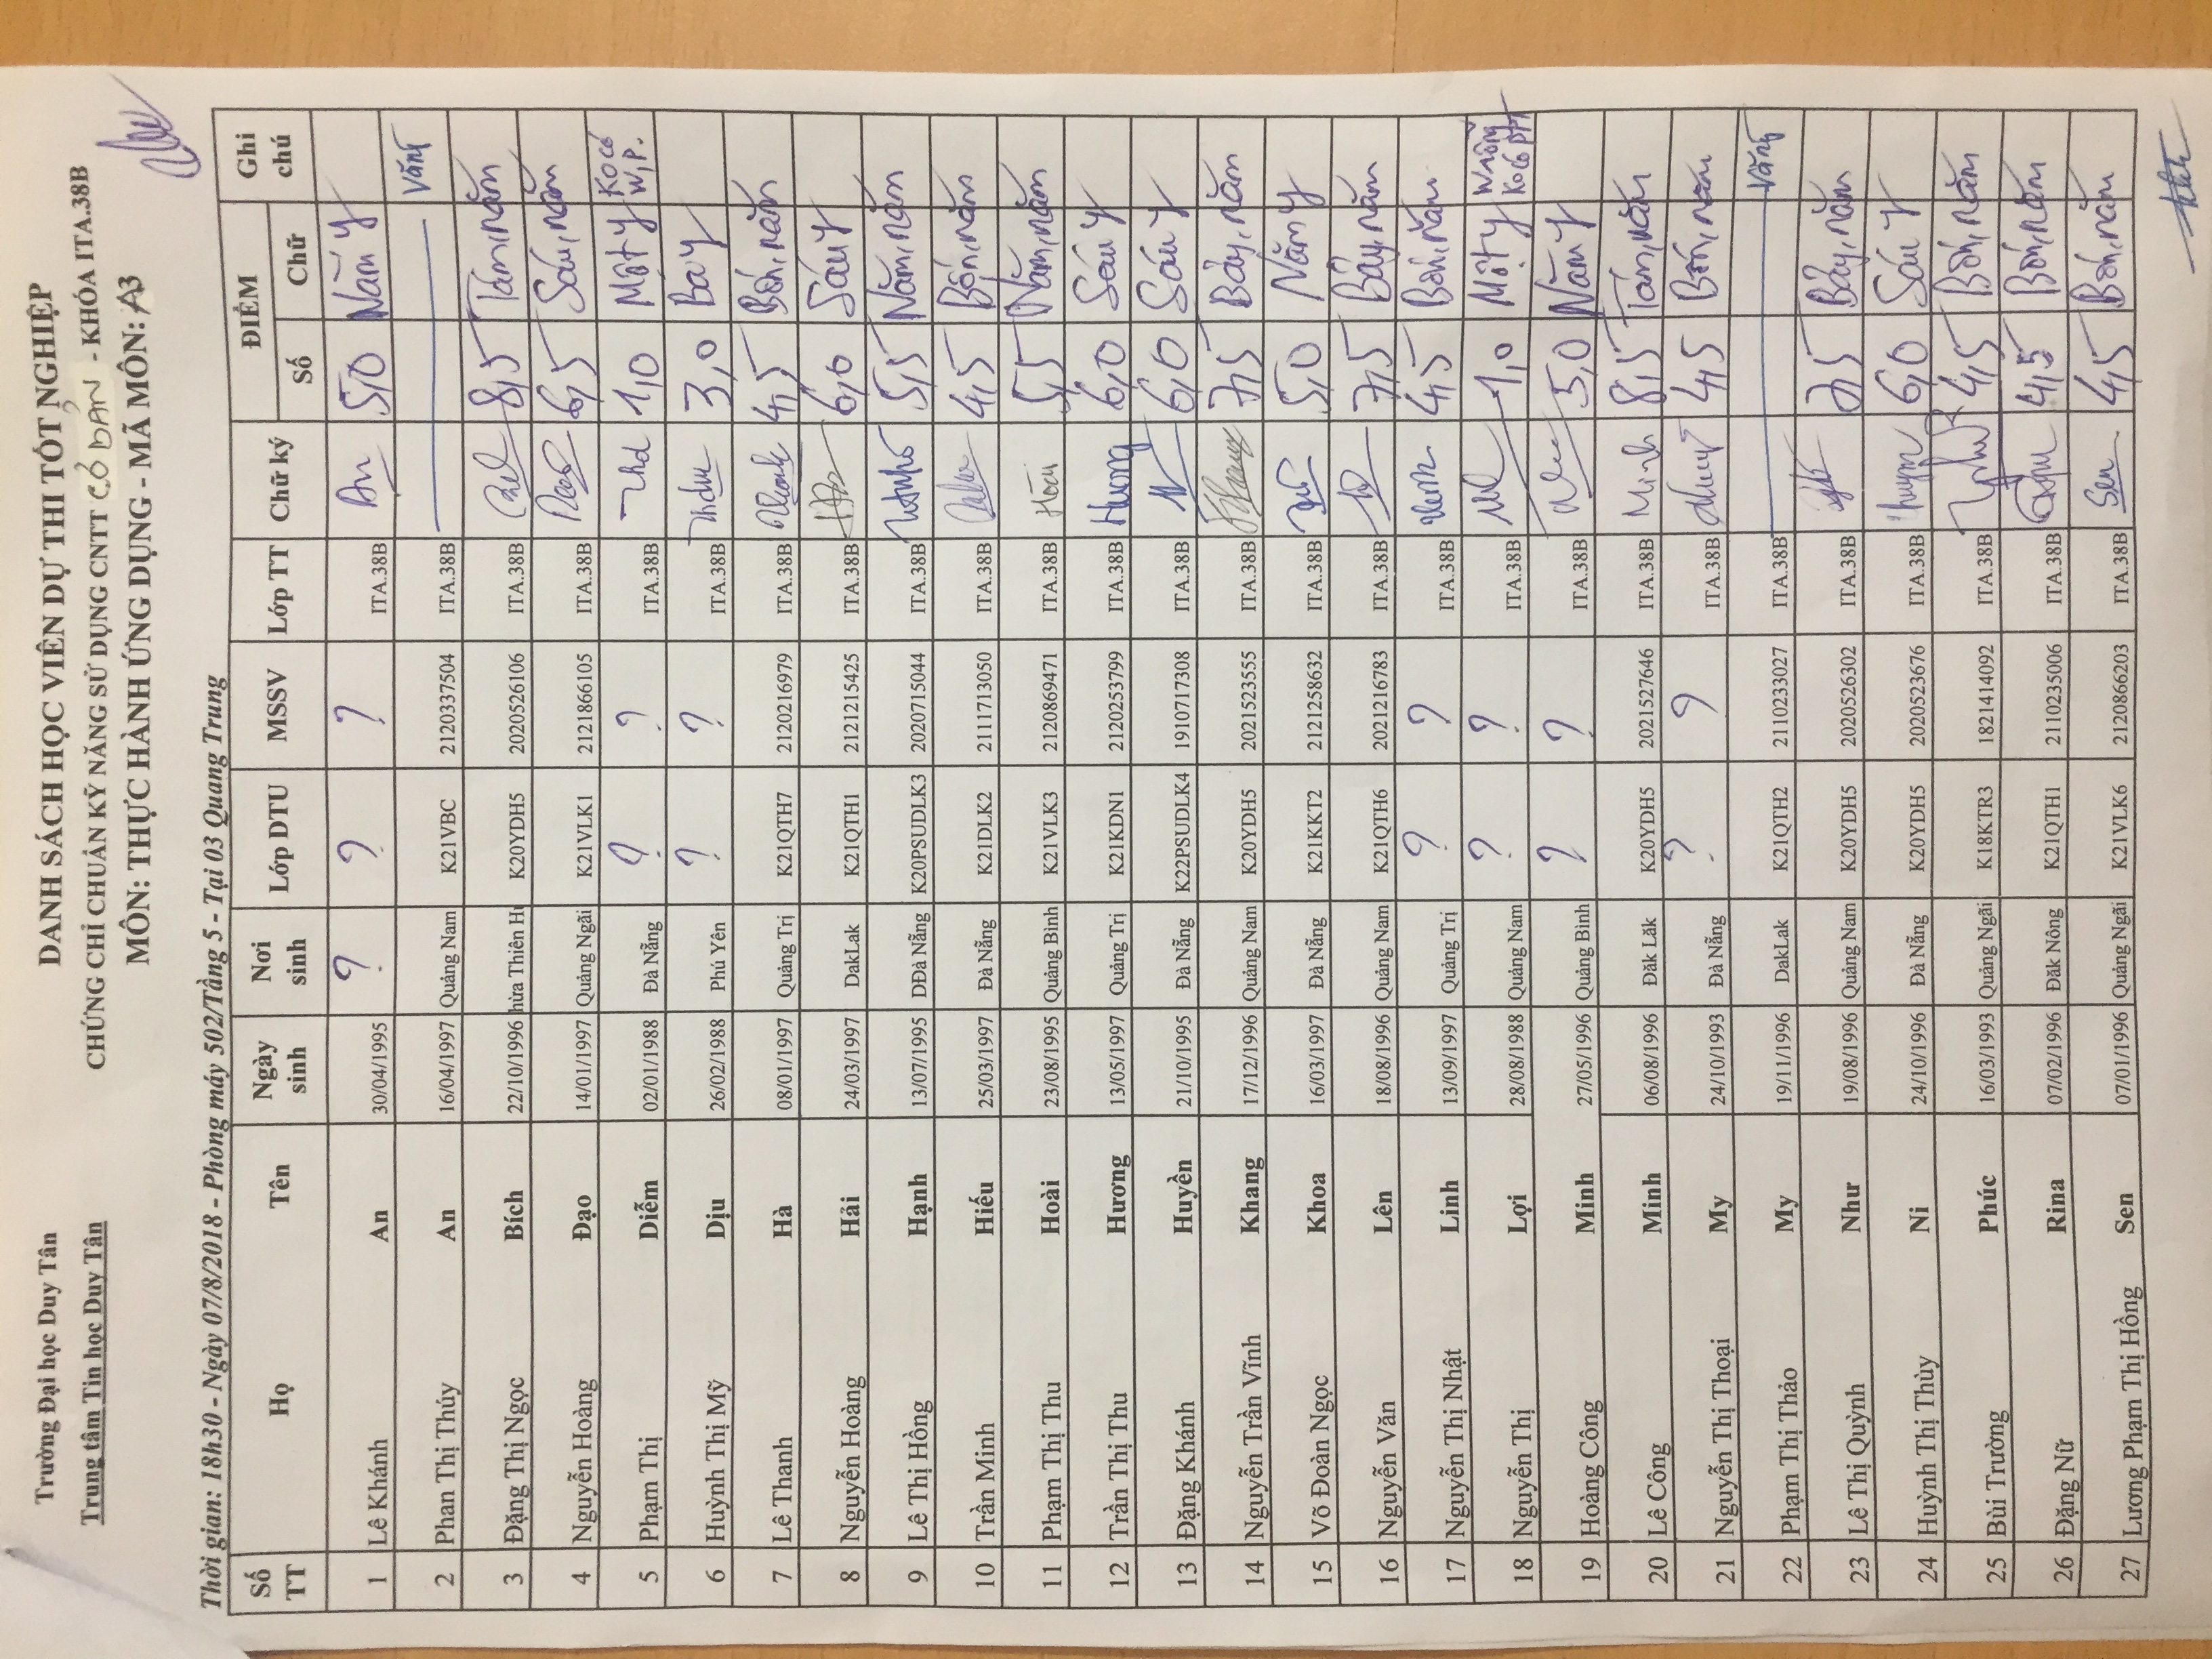 Trường Đại học Duy Tân
Trung tâm Tin học Duy Tân
DANH SÁCH HỌC VIÊN DỰ THI TỐT NGHIỆP
CHỨNG CHỈ CHUẨN KỸ NĂNG SỬ DỤNG CNTT CƠ BẢN - KHÓA ITA.38B
MÔN: THỰC HÀNH ỨNG DỤNG - MÃ MÔN: A3
Thời gian: 18h30 - Ngày 07/8/2018 - Phòng máy 502/Tầng 5 - Tại 03 Quang Trung
Số TT Họ Tên Ngày sinh Nơi sinh Lớp DTU MSSV Lớp TT Chữ ký ĐIỂM Số Chữ Ghi chú
1 Lê Khánh An 30/04/1995 ? ? ? ITA.38B An 5,0 Năm y
2 Phan Thị Thúy An 16/04/1997 Quảng Nam K21VBC 2120337504 ITA.38B Vắng
3 Đặng Thị Ngọc Bích 22/10/1996 hừa Thiên H K20YDH5 2020526106 ITA.38B 8,5 Tám, năm
4 Nguyễn Hoàng Đạo 14/01/1997 Quảng Ngãi K21VLK1 2121866105 ITA.38B 6,5 Sáu, năm
5 Phạm Thị Diễm 02/01/1988 Đà Nẵng ? ? ITA.38B 1,0 Một y Ko có W, P.
6 Huỳnh Thị Mỹ Dịu 26/02/1988 Phú Yên ? ? ITA.38B 3,0 Ba y
7 Lê Thanh Hà 08/01/1997 Quảng Trị K21QTH7 2120216979 ITA.38B 4,5 Bốn, năm
8 Nguyễn Hoàng Hải 24/03/1997 DakLak K21QTH1 2121215425 ITA.38B 6,0 Sáu y
9 Lê Thị Hồng Hạnh 13/07/1995 DĐà Nẵng K20PSUDLK3 2020715044 ITA.38B 5,5 Năm, năm
10 Trần Minh Hiếu 25/03/1997 Đà Nẵng K21DLK2 2111713050 ITA.38B 4,5 Bốn, năm
11 Phạm Thị Thu Hoài 23/08/1995 Quảng Bình K21VLK3 2120869471 ITA.38B Hoài 5,5 Năm, năm
12 Trần Thị Thu Hương 13/05/1997 Quảng Trị K21KDN1 2120253799 ITA.38B Hương 6,0 Sáu y
13 Đặng Khánh Huyền 21/10/1995 Đà Nẵng K22PSUDLK4 1910717308 ITA.38B 6,0 Sáu y
14 Nguyễn Trần Vĩnh Khang 17/12/1996 Quảng Nam K20YDH5 2021523555 ITA.38B Khang 7,5 Bảy, năm
15 Võ Đoàn Ngọc Khoa 16/03/1997 Đà Nẵng K21KKT2 2121258632 ITA.38B 5,0 Năm y
16 Nguyễn Văn Lên 18/08/1996 Quảng Nam K21QTH6 2021216783 ITA.38B 7,5 Bảy, năm
17 Nguyễn Thị Nhật Linh 13/09/1997 Quảng Trị ? ? ITA.38B 4,5 Bốn, năm
18 Nguyễn Thị Lợi 28/08/1988 Quảng Nam ? ? ITA.38B 1,0 Một y Ko có PPT
19 Hoàng Công Minh 27/05/1996 Quảng Bình ? ? ITA.38B 5,0 Năm y
20 Lê Công Minh 06/08/1996 Đăk Lăk K20YDH5 2021527646 ITA.38B Minh 8,5 Tám, năm
21 Nguyễn Thị Thoại My 24/10/1993 Đà Nẵng ? ? ITA.38B 4,5 Bốn, năm
22 Phạm Thị Thảo My 19/11/1996 DakLak K21QTH2 2110233027 ITA.38B Vắng
23 Lê Thị Quỳnh Như 19/08/1996 Quảng Nam K20YDH5 2020526302 ITA.38B 7,5 Bảy, năm
24 Huỳnh Thị Thùy Ni 24/10/1996 Đà Nẵng K20YDH5 2020523676 ITA.38B 6,0 Sáu y
25 Bùi Trường Phúc 16/03/1993 Quảng Ngãi K18KTR3 1821414092 ITA.38B 4,5 Bốn, năm
26 Đặng Nữ Rina 07/02/1996 Đăk Nông K21QTH1 2110235006 ITA.38B 4,5 Bốn, năm
27 Lương Phạm Thị Hồng Sen 07/01/1996 Quảng Ngãi K21VLK6 2120866203 ITA.38B Sen 4,5 Bốn, năm